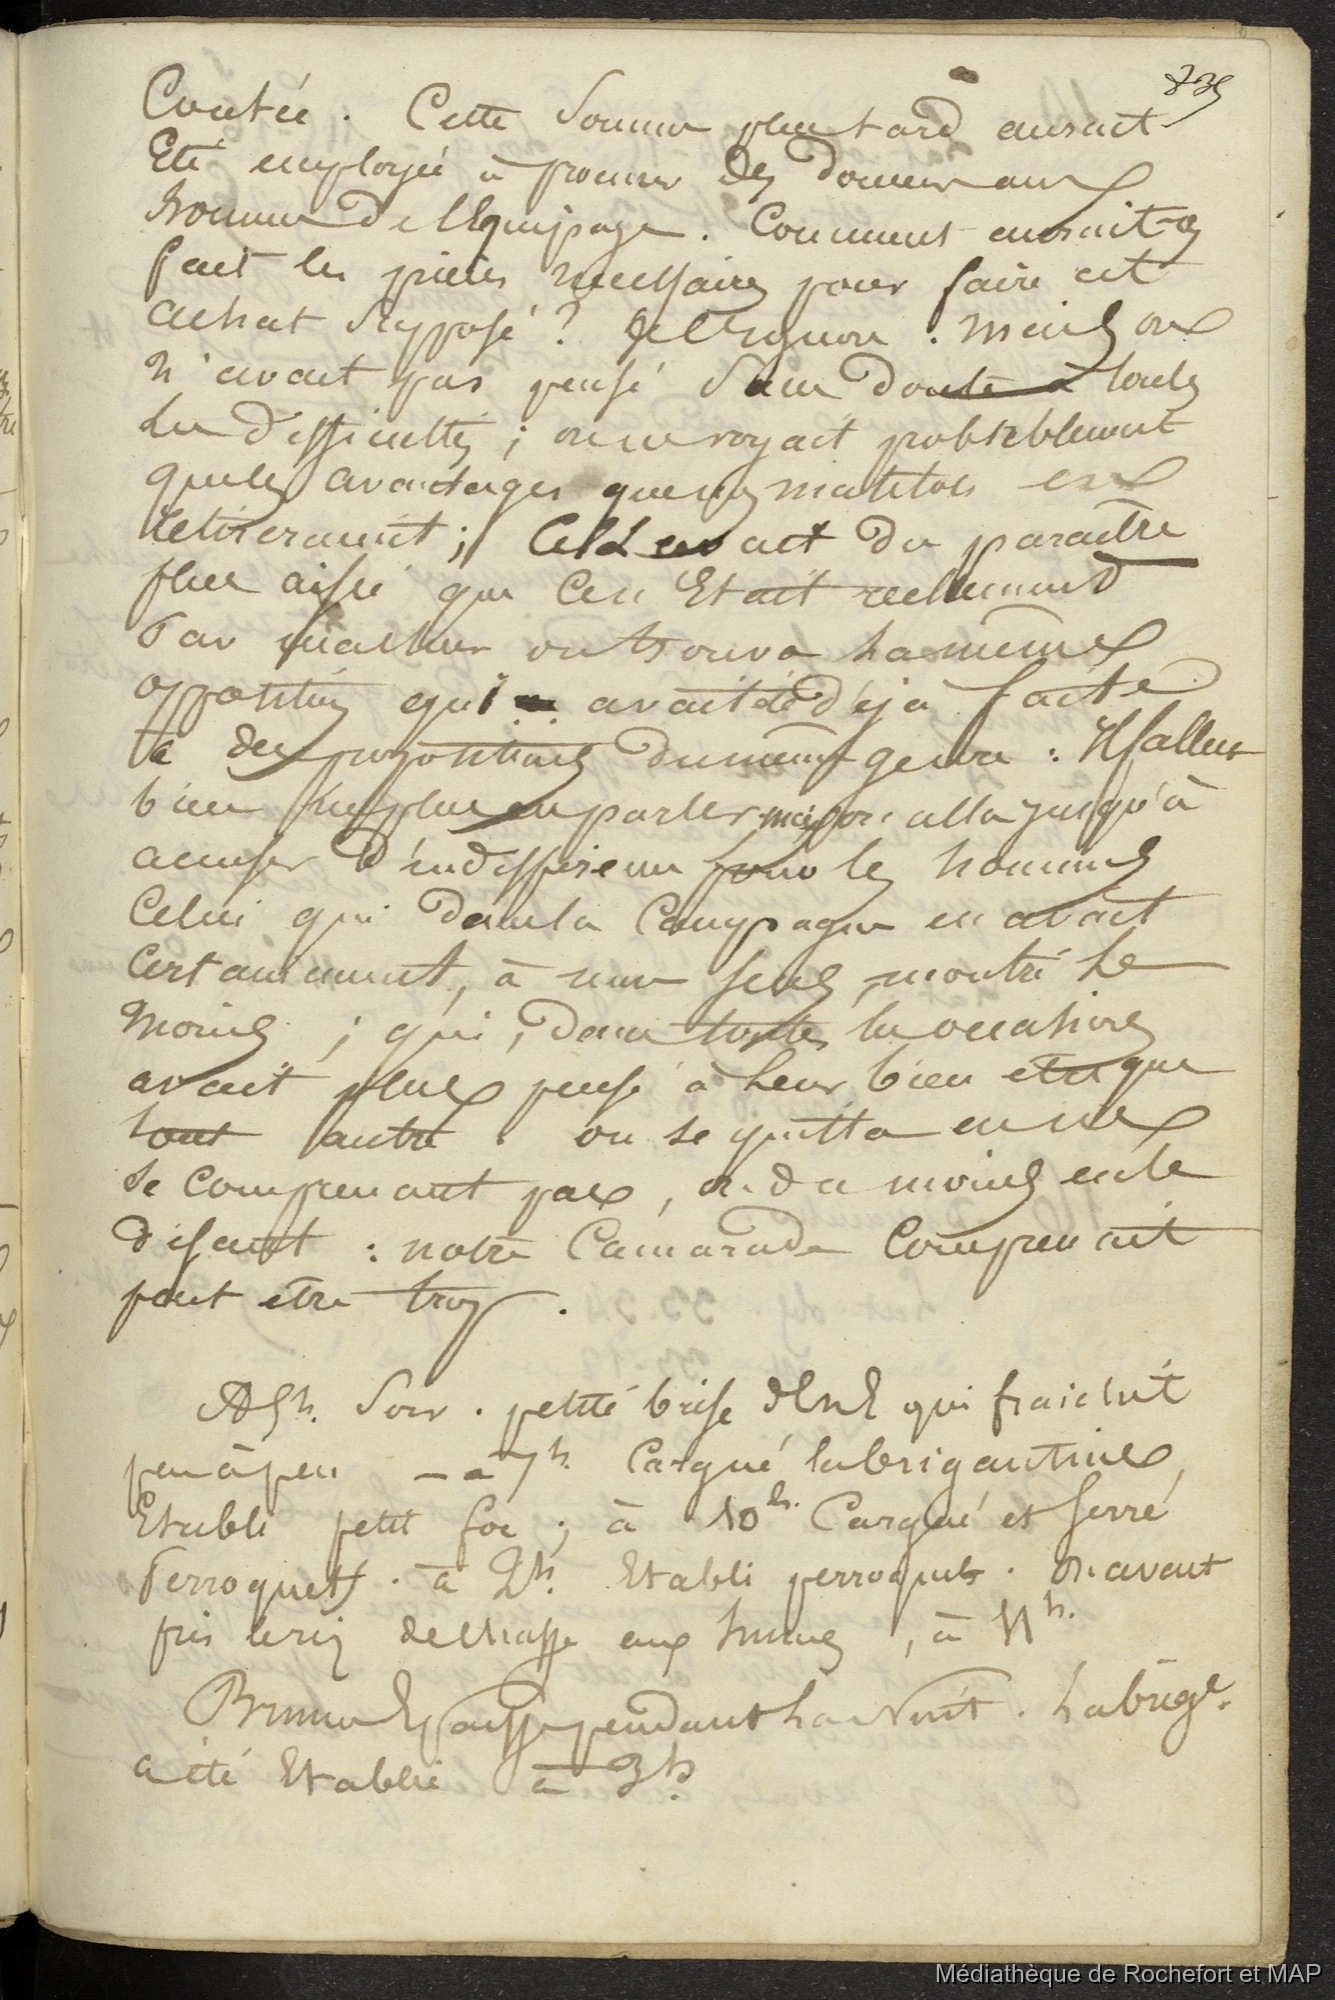 Coutée. Cette Somme plus tard aurait
Eté employée à procurer des douceurs aux
hommes de l'Equipage. Comment aurait-on
fait les prises necessaires pour faire cet
achat supposé? Je l'Ignore. Mais on
n'avait pas pensé sans doute à toutes
les difficultés; on ne voyait probablement
que les avantages que nos matelots en
retireraient; Cela avait du paraitre
plus aisé que cen Etait reellement
Par malheur on trouva la même
opposition qui avait été déjà faite
à des propositions du même genre: Il fallut
bien ne plus en parler mais on alla jusqu'à
accuser d'indifference pour les hommes
Celui qui dans la Campagne en avait
Certainement, à mon sens, montré le
moins; qui, dans toutes les occasions
avait plus pensé à leur bien etre que
tout autre. on se quitta en ne
se comprenant pas, ou du moins en le
disant: notre Camarade Comprenait
peut etre trop.
A 5h. Soir. petite brise d'ENE qui fraichit
peu à peu — à 7h. Cargué la brigantine,
Etabli petit foc; à 10h. Cargué et serré
Perroquets. à 2h. Etabli perroquets. On avait
pris le ris de chasse aux huniers, à 11h.
Brume Epaisse pendant la Nuit. La brig.
a été Etablie à 3h.
Médiathèque de Rochefort et MAP